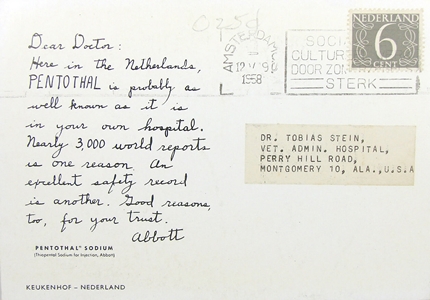 Dear Doctor:
Here in the Netherlands,
PENTOTHAL is probably as
well known as it is
in your own hospital.
Nearly 3,000 world reports
is one reason. An
excellent safety record
is another. Good reasons,
too, for your trust.
Abbott
PENTOTHAL® SODIUM
(Thiopental Sodium for Injection, Abbott)
KEUKENHOF – NEDERLAND
AMSTERDAM
1958
SOCI
CULTURE
DOOR ZO
STERK
NEDERLAND
6
CENT
DR. TOBIAS STEIN,
VET. ADMIN. HOSPITAL,
PERRY HILL ROAD,
MONTGOMERY 10, ALA.,U.S.A